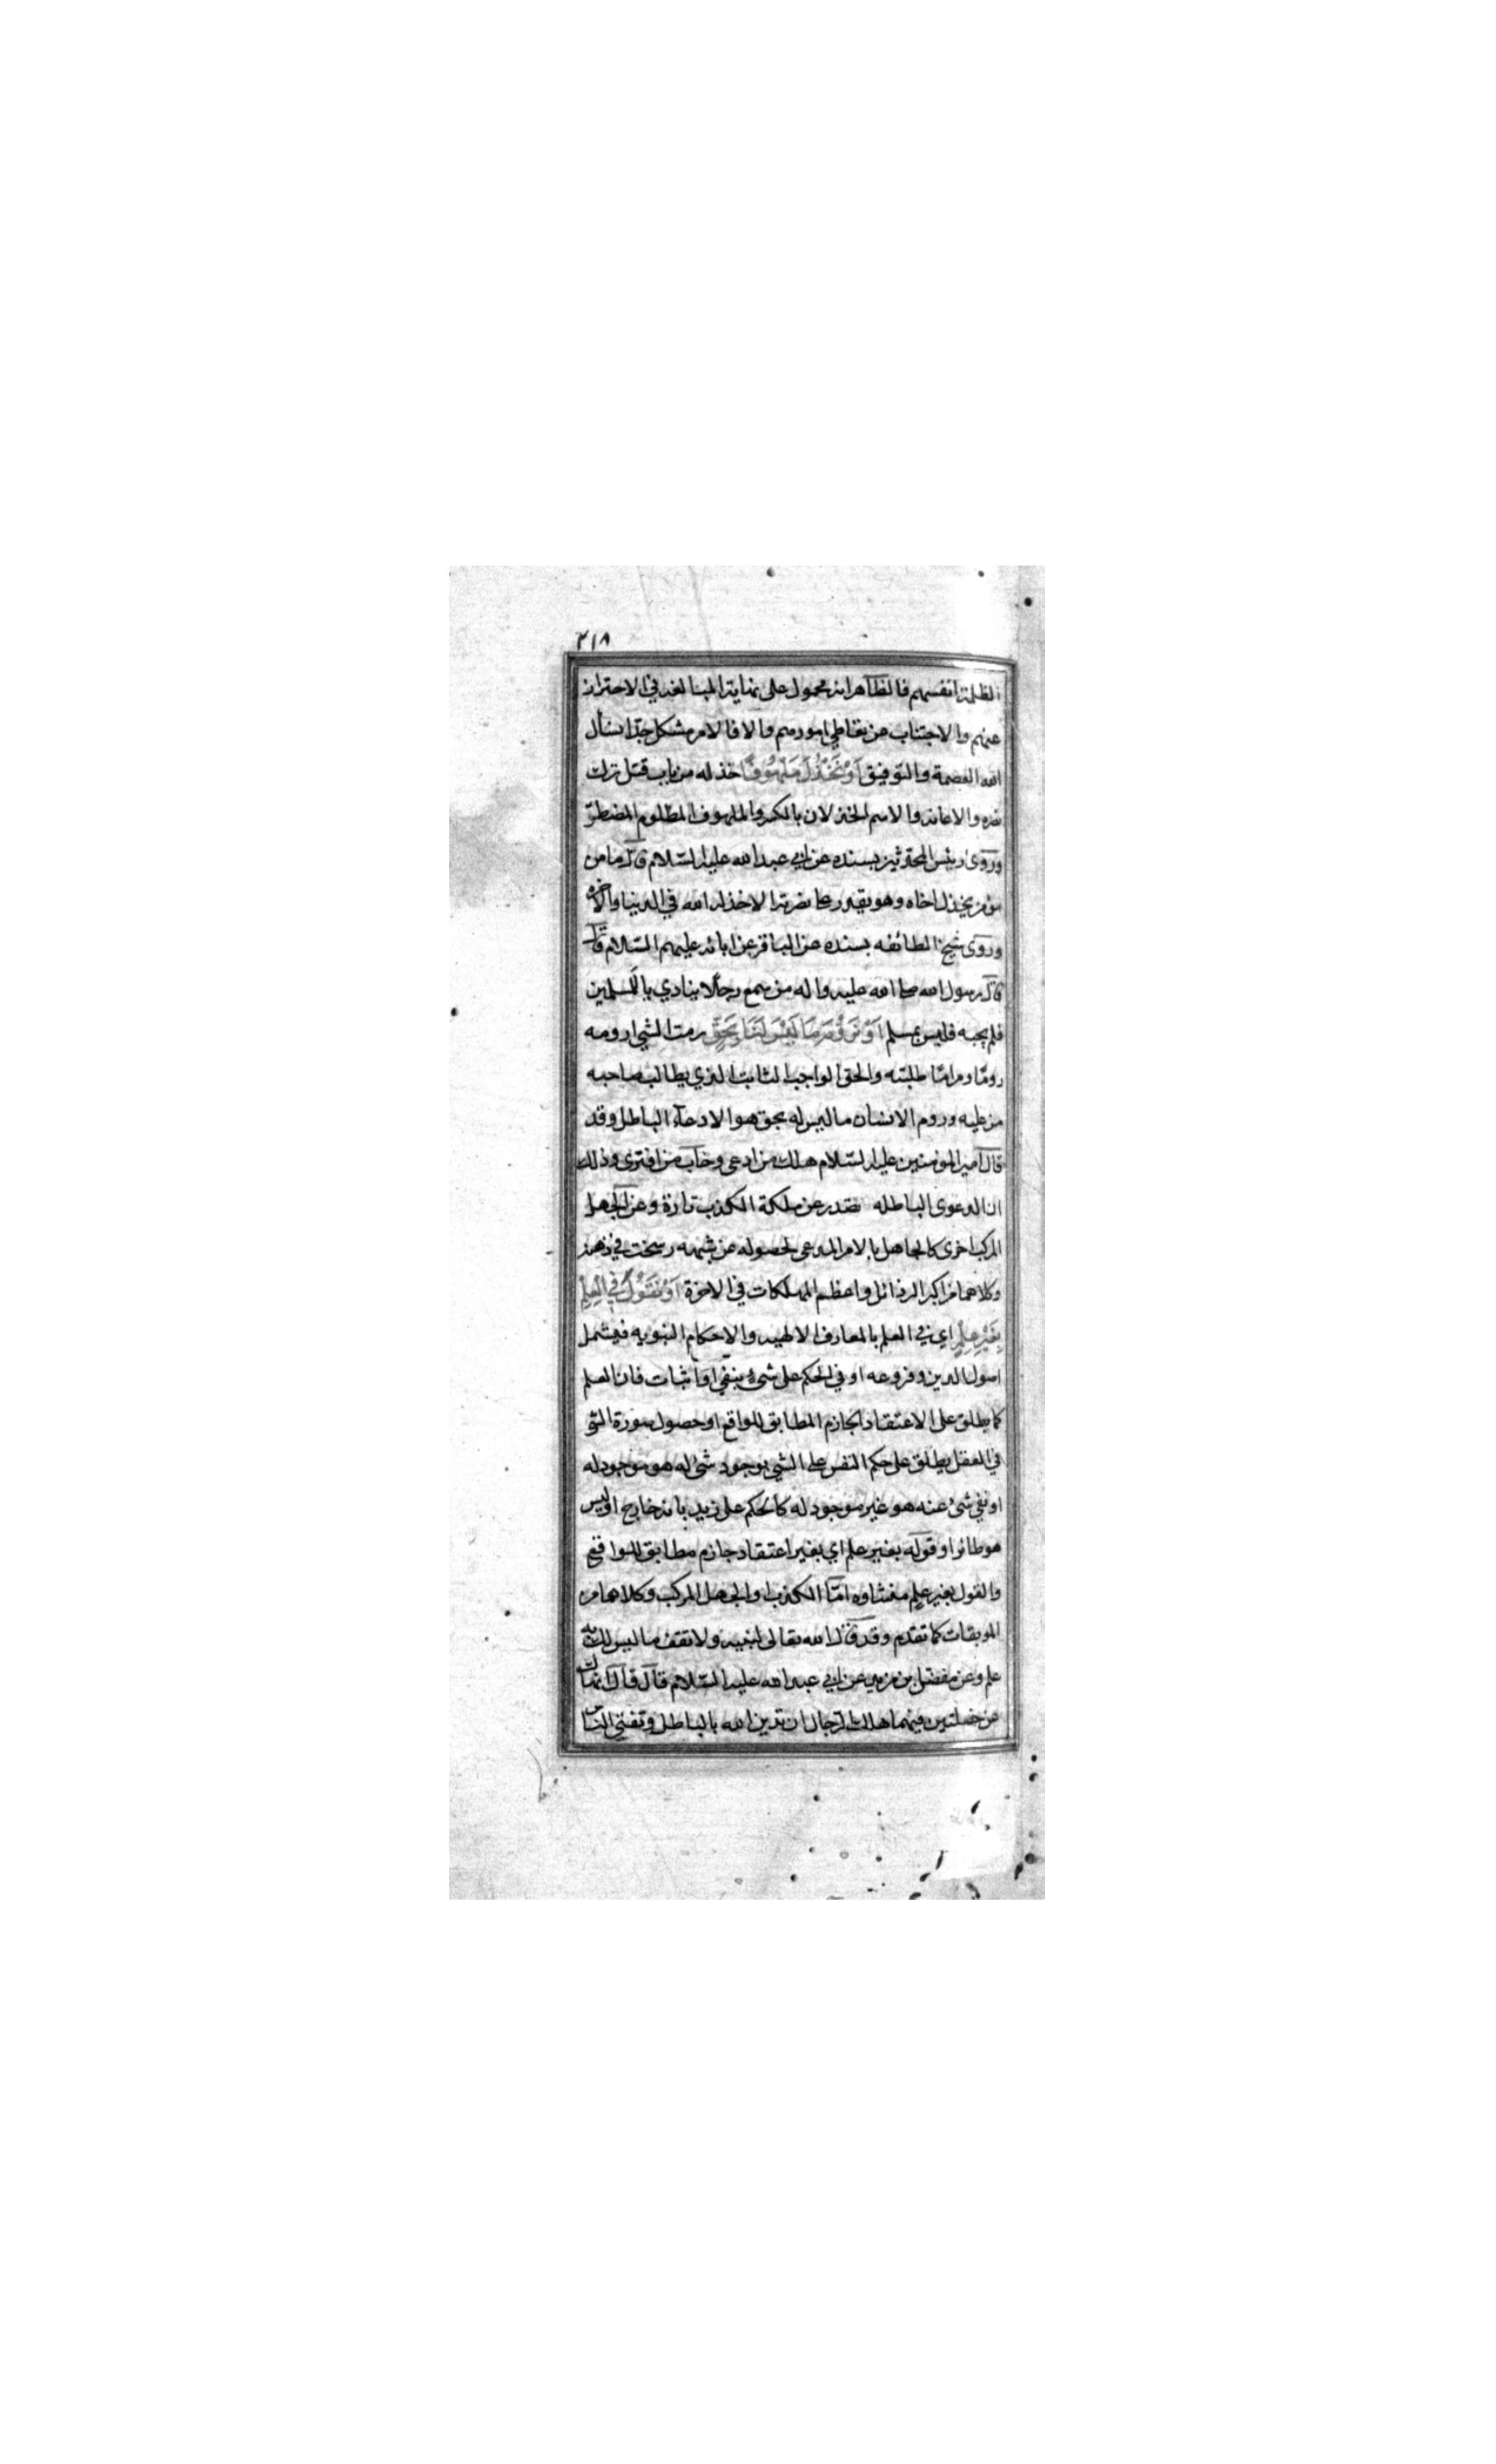 ٢١٨
الظلمة انفسهم فالظاهر انه محمول على نهاية المبالغه في الاحتراز
عنهم والاجتناب عن تعاطي امورهم والا فالامر مشكل جدّا نسأل
الله العصمة والتوفيق اَوْ نَخْذُلَ مَلْهُوفًا خذله من باب قتل ترك
نصره والاعانه والاسم الخذلان بالكسر والملهوف المظلوم المضطرّ
وروى رئيس المحدّثين بسنده عن ابي عبد الله عليه السّلام قال ما من
مؤمن يخذل اخاه وهو يقدر على نصرته الا خذله الله في الدنيا والآخره
وروى شيخ الطائفه بسنده عن الباقر عن ابائه عليهم السّلام قال
قال رسول الله صلى الله عليه واله من سمع رجلًا ينادي يا للمسلمين
فلم يجبه فليس بمسلم اَوْ نَرُومَ مَا لَيْسَ لَنَا بِحَقٍّ رمت الشي ارومه
رومًا ومرامًا طلبته والحق الواجب الثابت الذي يطالب صاحبه
من عليه وروم الانسان ما ليس له بحق هو الادعآء الباطل وقد
قال امير المؤمنين عليه السّلام هلك من ادعى وخاب من افترى وذلك
ان الدعوى الباطله تصدر عن ملكة الكذب تارة وعن الجهل
المركب اخرى كالجاهل بالامر المدعى لحصوله عن شبهه رسخت في ذهنه
وكلاهما من اكبر الرذائل واعظم المهلكات في الاخرة اَوْ نَقُولَ فِي الْعِلْمِ
بِغَيْرِ عِلْمٍ اي في العلم بالمعارف الالهيه والاحكام النبويه فيشمل
اصول الدين وفروعه او في الحكم على شئ بنفي او اثبات فان العلم
كما يطلق على الاعتقاد الجازم المطابق للواقع او حصول صورة الشي
في العقل يطلق على حكم النفس على الشي بوجود شئ له هو موجود له
او نفي شئ عنه هو غير موجود له كالحكم على زيد بانه خارج او ليس
هو طائرا وقوله بغير علم اي بغير اعتقاد جازم مطابق للواقع
والقول بغير علم منشاوه امّا الكذب او الجهل المركب وكلاهما من
الموبقات كما تقدم وقد قال الله تعالى لنبيه ولا تقف ما ليس لك به
علم وعن مفضل بن مزيد عن ابي عبد الله عليه السّلام قال قال انهاك
عن خصلتين فيهما هلك الرجال ان تدين الله بالباطل وتفتي الناس